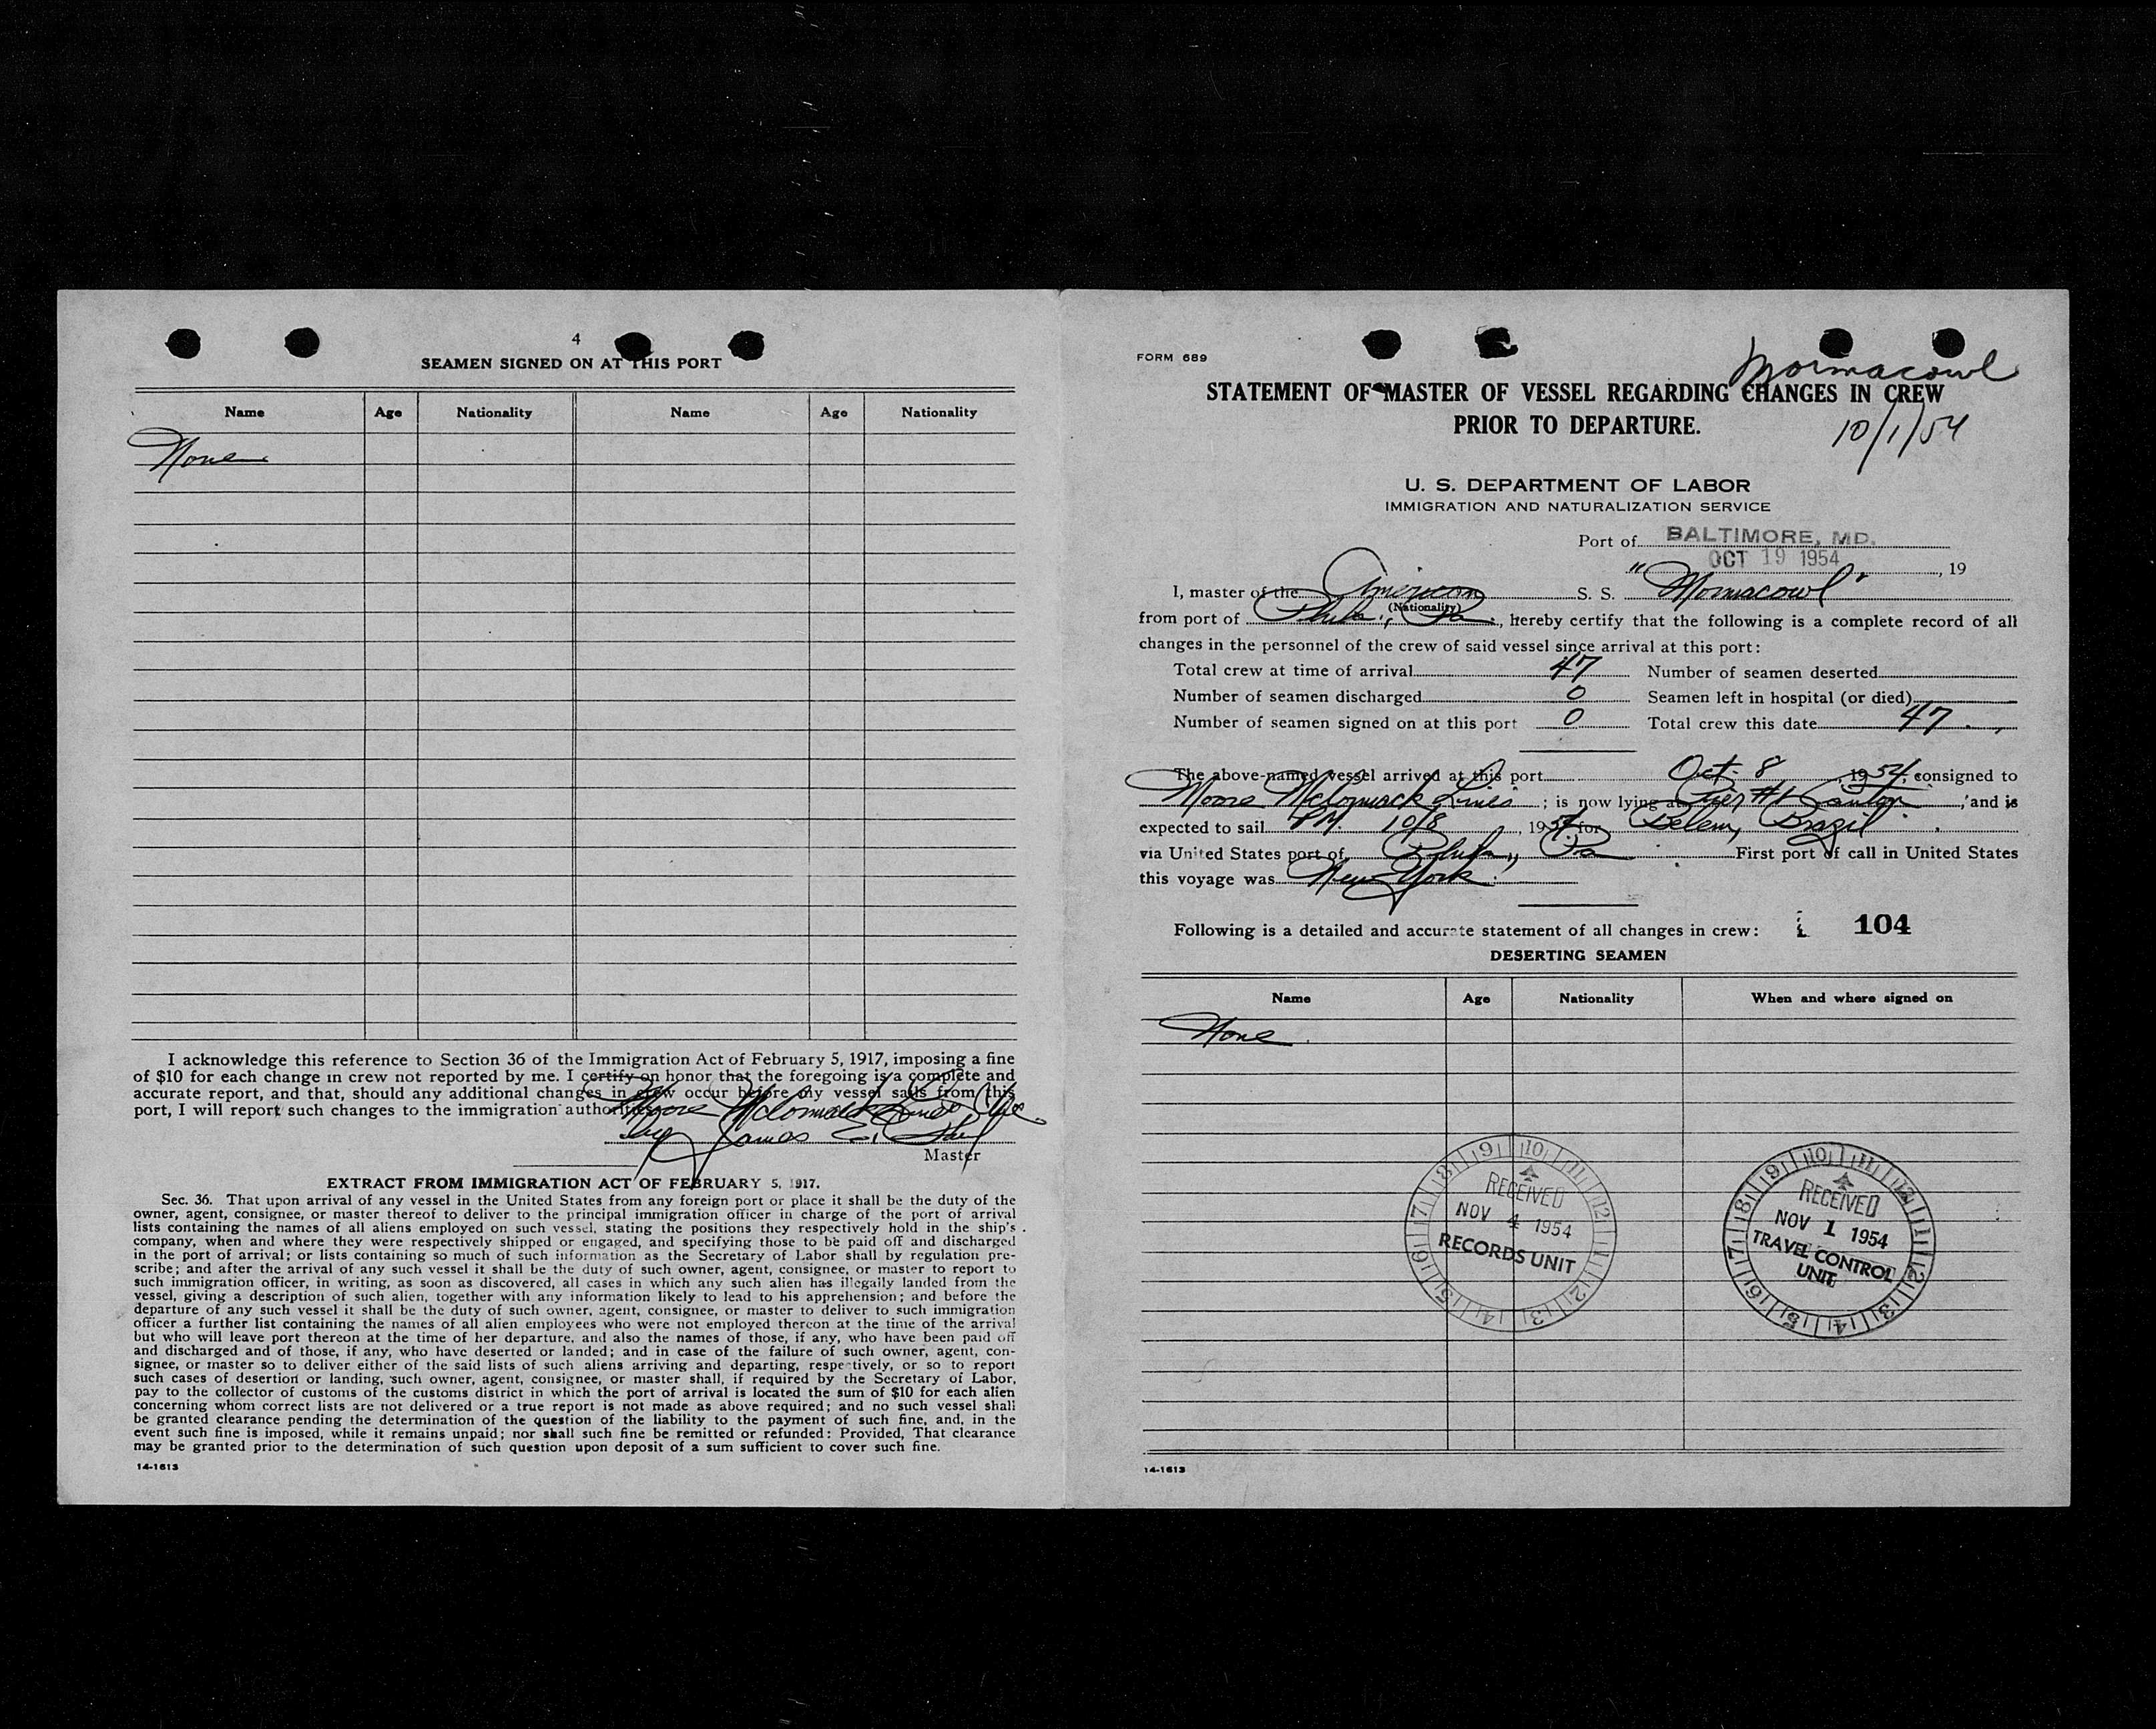 4
SEAMEN SIGNED ON AT THIS PORT
Name Age Nationality Name Age Nationality
None
I acknowledge this reference to Section 36 of the Immigration Act of February 5, 1917, imposing a fine
of $10 for each change in crew not reported by me. I certify on honor that the foregoing is a complete and
accurate report, and that, should any additional changes in crew occur before my vessel sails from this
port, I will report such changes to the immigration authorities.
Moore McCormack Lines Inc.
by James E.
Master
EXTRACT FROM IMMIGRATION ACT OF FEBRUARY 5, 1917.
Sec. 36. That upon arrival of any vessel in the United States from any foreign port or place it shall be the duty of the
owner, agent, consignee, or master thereof to deliver to the principal immigration officer in charge of the port of arrival
lists containing the names of all aliens employed on such vessel, stating the positions they respectively hold in the ship's
company, when and where they were respectively shipped or engaged, and specifying those to be paid off and discharged
in the port of arrival; or lists containing so much of such information as the Secretary of Labor shall by regulation pre-
scribe; and after the arrival of any such vessel it shall be the duty of such owner, agent, consignee, or master to report to
such immigration officer, in writing, as soon as discovered, all cases in which any such alien has illegally landed from the
vessel, giving a description of such alien, together with any information likely to lead to his apprehension; and before the
departure of any such vessel it shall be the duty of such owner, agent, consignee, or master to deliver to such immigration
officer a further list containing the names of all alien employees who were not employed thereon at the time of the arrival
but who will leave port thereon at the time of her departure, and also the names of those, if any, who have been paid off
and discharged and of those, if any, who have deserted or landed; and in case of the failure of such owner, agent, con-
signee, or master so to deliver either of the said lists of such aliens arriving and departing, respectively, or so to report
such cases of desertion or landing, such owner, agent, consignee, or master shall, if required by the Secretary of Labor,
pay to the collector of customs of the customs district in which the port of arrival is located the sum of $10 for each alien
concerning whom correct lists are not delivered or a true report is not made as above required; and no such vessel shall
be granted clearance pending the determination of the question of the liability to the payment of such fine, and, in the
event such fine is imposed, while it remains unpaid; nor shall such fine be remitted or refunded: Provided, That clearance
may be granted prior to the determination of such question upon deposit of a sum sufficient to cover such fine.
14-1613
FORM 689
Mormacowl
STATEMENT OF MASTER OF VESSEL REGARDING CHANGES IN CREW
PRIOR TO DEPARTURE.
10/1/54
U. S. DEPARTMENT OF LABOR
IMMIGRATION AND NATURALIZATION SERVICE
Port of BALTIMORE, MD.
OCT 19 1954, 19
I, master of the American S. S. "Mormacowl"
(Nationality)
from port of Phila., Pa., hereby certify that the following is a complete record of all
changes in the personnel of the crew of said vessel since arrival at this port:
Total crew at time of arrival 47 Number of seamen deserted
Number of seamen discharged 0 Seamen left in hospital (or died)
Number of seamen signed on at this port 0 Total crew this date 47
The above-named vessel arrived at this port Oct. 8, 1954, consigned to
Moore McCormack Lines; is now lying at Pier #1 Canton, and is
expected to sail P.M. 10/8, 1954 for Belem, Brazil
via United States port of Phila., Pa First port of call in United States
this voyage was New York
Following is a detailed and accurate statement of all changes in crew: 104
DESERTING SEAMEN
Name Age Nationality When and where signed on
None
RECEIVED
NOV 4 1954
RECORDS UNIT
RECEIVED
NOV 1 1954
TRAVEL CONTROL
UNIT
14-1613